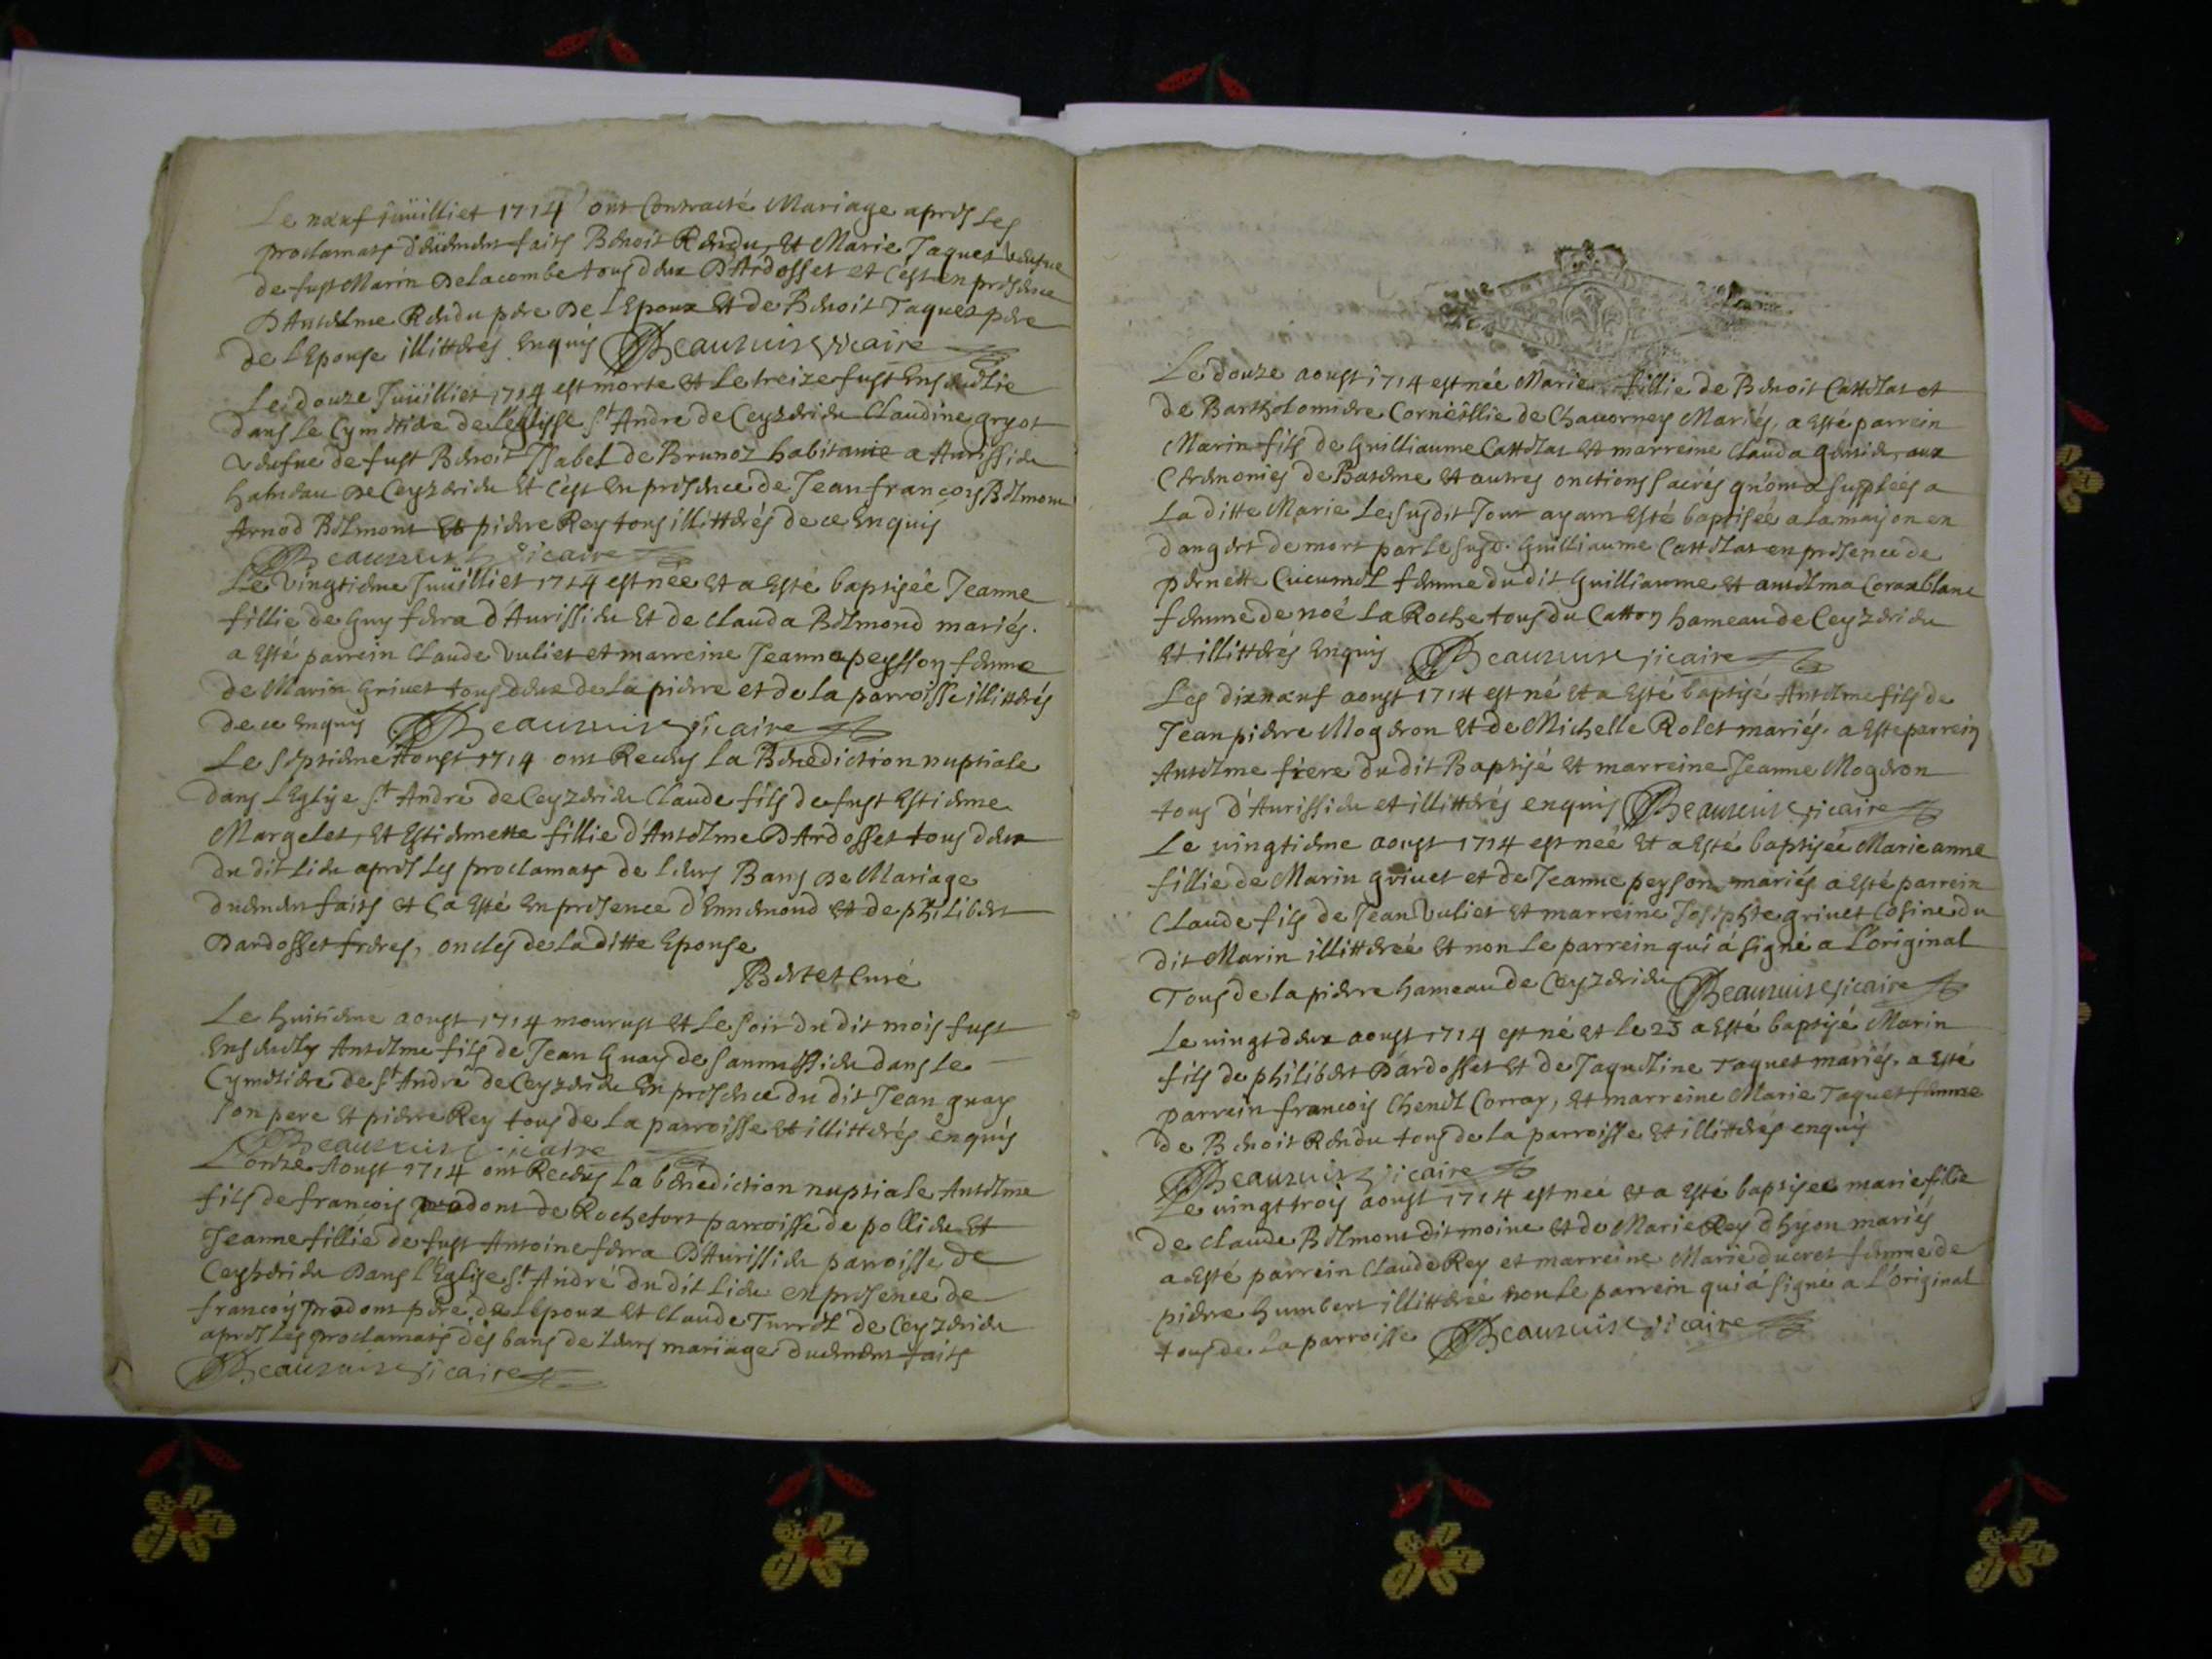 Le neuf juilliet 1714 ont Contracté Mariage apres Les
proclamats deüement faits Benoit Rendu, et Marie Taquet veufue
de fust Marin Delacombe tous deux D'Ardosset et C'est en presence
D'Anselme Rendu pere De L'Epoux et de Benoit Taquet pere
de L'Epouse illitterés Enquis Beauvuis vicaire
Le douze Juilliet 1714 est morte et Le treize fust Ensevelie
dans Le Cymetiere de L'eglisse St Andre de Ceyzerieu Claudine gryot
veufue de fust Benoit Isabel de Brunoz habitante a Aurissieu
hameau de Ceyzerieu et C'est En presence de Jean françois Belmont
Arnod Belmont et pierre Rey tous illitterés de ce Enquis
Beauvuis vicaire
Le vingtieme Juilliet 1714 est née et a Esté baptisée Jeanne
fillie de Guy ferra d'Aurissieu et de Clauda Belmond mariés.
a Esté parrein Claude Vuliet et marreine Jeanne peysson femme
de Marin Grivet tous deux de La pierre et de La parroisse illitterés
de ce Enquis Beauvuis vicaire
Le septieme Aoust 1714 ont Receus La Benediction nuptiale
dans L'Eglise St André de Ceyzerieu Claude fils de fust Estienne
Margelet, et Estiennette fillie d'Anselme D'Ardosset tous deux
du dit Lieu apres Les proclamats de Leurs Bans de Mariage
duement faits et Ca Esté En presence d'Ennemond et de philibert
Dardosset freres, oncles de La ditte Epouse
Bertet Curé
Le huitieme aoust 1714 mourust et Le soir du dit mois fust
Ensevely Anselme fils de Jean Guay de Saumissieu dans Le
Cymetiere de St André de Ceyzerieu En presence du dit Jean guay
son pere et pierre Rey tous de La parroisse et illitterés enquis
Beauvuis vicaire
L'onze Aoust 1714 ont Receus La benediction nuptiale Anselme
fils de françois prodont de Rochefort parroisse de pollieu et
Jeanne fillie de fust Antoine ferra D'Aurissieu parroisse de
Ceyzerieu Dans L'Eglise St André du dit Lieu en presence de
françois prodont pere de L'Epoux et Claude Turrel de Ceyzerieu
apres Les proclamats des bans de Leurs mariage duement faits
Beauvuis vicaire
Le douze aoust 1714 est née Marie fillie de Benoit Cattelat et
de Bartholomiere Corneillie de Chavorney Mariés, a Esté parrein
Marin fils de Guilliaume Cattelat et marreine Clauda aux
Ceremonies de Bateme et autres onctions sacrés qu'on a supplées a
La ditte Marie Le susdit Jour ayant Esté baptisée a La maison en
danger de mort par Le susd. Guilliaume Cattelat en presence de
pernette Cucumel femme du dit Guilliaume et Anselma Coraxblanc
femme de noé La Roche tous du Catton hameau de Ceyzerieu
et illitterés Enquis Beauvuis vicaire
Les dixneuf aoust 1714 est né et a Esté baptisé Anselme fils de
Jean pierre Mogeron et de Michelle Rolet mariés. a Esté parrein
Anselme frere du dit Baptisé et marreine Jeanne Mogeron
tous d'Aurissieu et illitterés enquis Beauvuis vicaire
Le vingtieme aoust 1714 est née et a Esté baptisée Marie anne
fillie de Marin grivet et de Jeanne peyson mariés a Esté parrein
Claude fils de Jean Vuliet et marreine Josephte grivet Cosine du
dit Marin illitterée et non Le parrein qui a signé a L'original
Tous de La pierre hameau de Ceyzerieu Beauvuis vicaire
Le vingt deux aoust 1714 est né et le 23 a Esté baptisé Marin
fils de philibert Dardosset et de Jaqueline Taquet mariés. a Esté
parrein françois Chenel Corray, et marreine Marie Taquet femme
de Benoit Rendu tous de La parroisse et illitterés enquis
Beauvuis vicaire
Le vingt trois aoust 1714 est née et a Esté baptisée marie fillie
de Claude Belmont dit moine et de Marie Rey d'hyon mariés
a Esté parrein Claude Rey et marreine Marie ducret femme de
pierre humbert illitterée non Le parrein qui a signé a L'original
tous de La parroisse Beauvuis vicaire